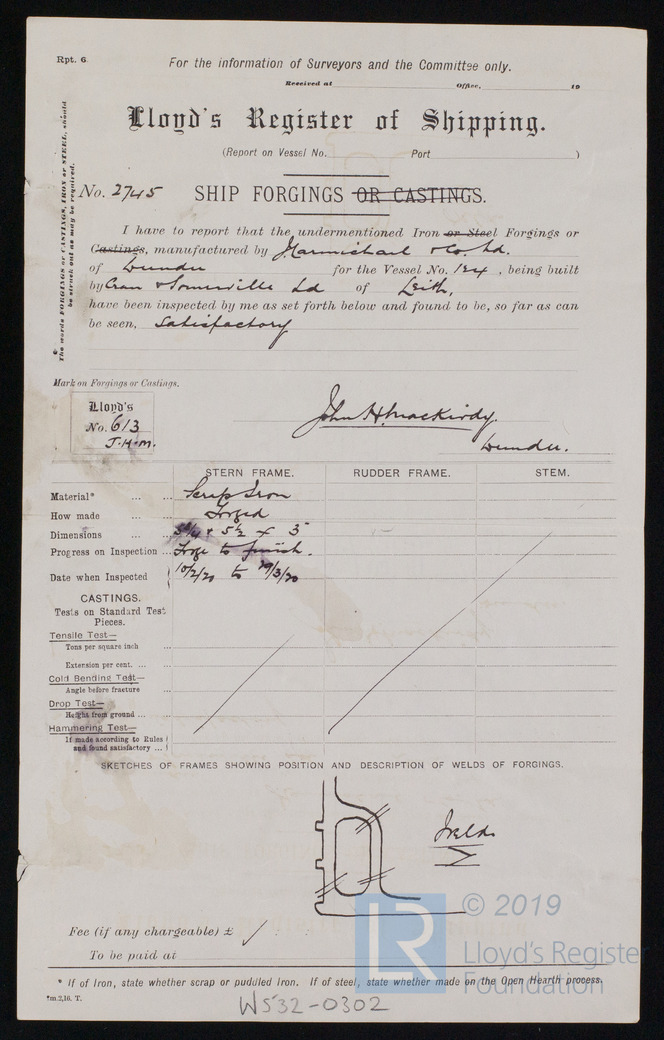 Rpt. 6.
For the information of Surveyors and the Committee only.
Received at Office, 19
Lloyd's Register of Shipping.
(Report on Vessel No. Port )
The words FORGINGS or CASTINGS, IRON or STEEL, should
be struck out as may be required.
No. 2745 SHIP FORGINGS OR CASTINGS.
I have to report that the undermentioned Iron or Steel Forgings or
Castings, manufactured by J. Carmichael & Co. Ld.
of Dundee for the Vessel No. 124, being built
by Cran & Somerville Ld of Leith,
have been inspected by me as set forth below and found to be, so far as can
be seen, satisfactory
Mark on Forgings or Castings.
Lloyd's
No. 613
J.H.M.
John H. Mackirdy.
Dundee.
STERN FRAME. RUDDER FRAME. STEM.
Material* ... ... Scrap Iron
How made ... ... Forged
Dimensions ... ... 5½ × 3
Progress on Inspection ... Forge to finish.
Date when Inspected 10/2/20 to /3/20
CASTINGS.
Tests on Standard Test
Pieces.
Tensile Test—
Tons per square inch ...
Extension per cent. ... ...
Cold Bending Test—
Angle before fracture ...
Drop Test—
Height from ground ... ...
Hammering Test—
If made according to Rules
and found satisfactory ...
SKETCHES OF FRAMES SHOWING POSITION AND DESCRIPTION OF WELDS OF FORGINGS.
Welds
Fee (if any chargeable) £
To be paid at
* If of Iron, state whether scrap or puddled Iron. If of steel, state whether made on the Open Hearth process.
*m.2,16. T.
W532-0302
LR
© 2019
Lloyd's Register
Foundation